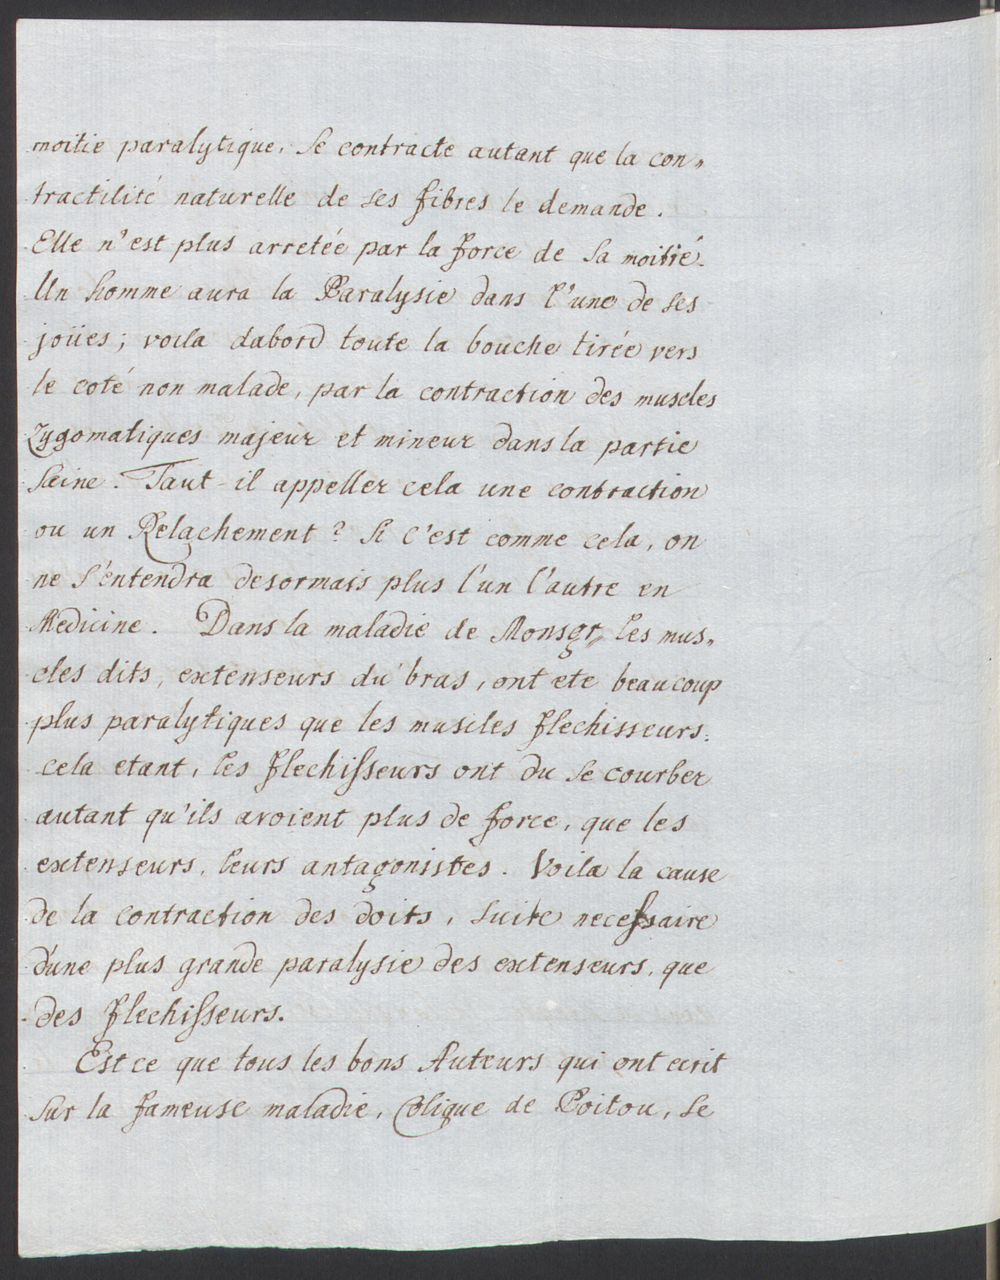 moitie paralytique, se contracte autant que la con„
tractilité naturelle de ses fibres le demande.
Elle n'est plus arretée par la force de sa moitié.
Un homme aura la Paralysie dans l'une de ses
joües; voila dabord toute la bouche tirée vers
le coté non malade, par la contraction des muscles
zygomatiques majeur et mineur dans la partie
saine. Faut-il appeller cela une contraction
ou un Relachement? Si c'est comme cela, on
ne s'entendra desormais plus l'un l'autre en
Medicine. Dans la maladie de Monsgr, les mus„
cles dits, extenseurs du bras, ont ete beaucoup
plus paralytiques que les muscles flechisseurs.
cela etant, les flechisseurs ont du se courber
autant qu'ils avoient plus de force, que les
extenseurs, leurs antagonistes. Voila la cause
de la contraction des doits, suite necessaire
d'une plus grande paralysie des extenseurs, que
des flechisseurs.
Est ce que tous les bons Auteurs qui ont ecrit
sur la fameuse maladie, Colique de Poitou, se